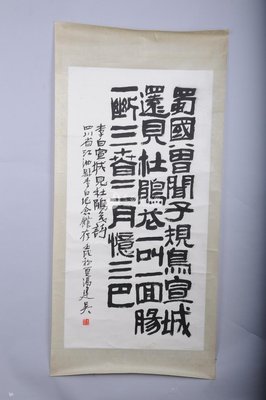 蜀國曾聞子規鳥宣城
還見杜鵑花一叫一回腸
一斷三春三月憶三巴
李白宣城見杜鵑花詩
四川省江油縣李白紀念館存 夏馮建吳